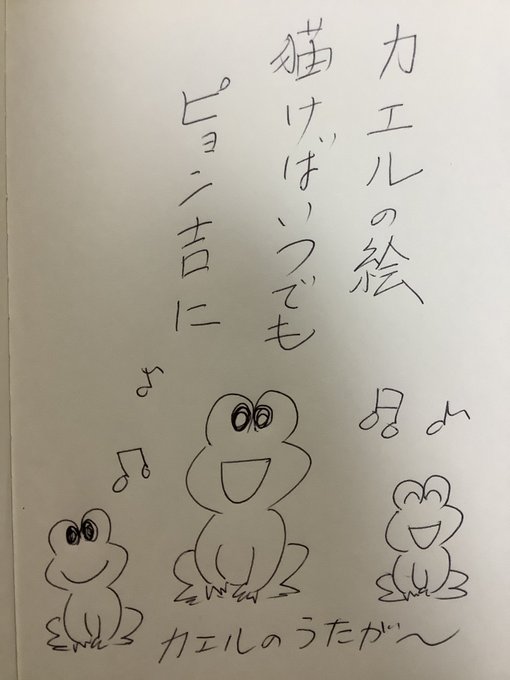 カエルの絵
猫けばいつでも
ピョン吉に
カエルのうたが〜